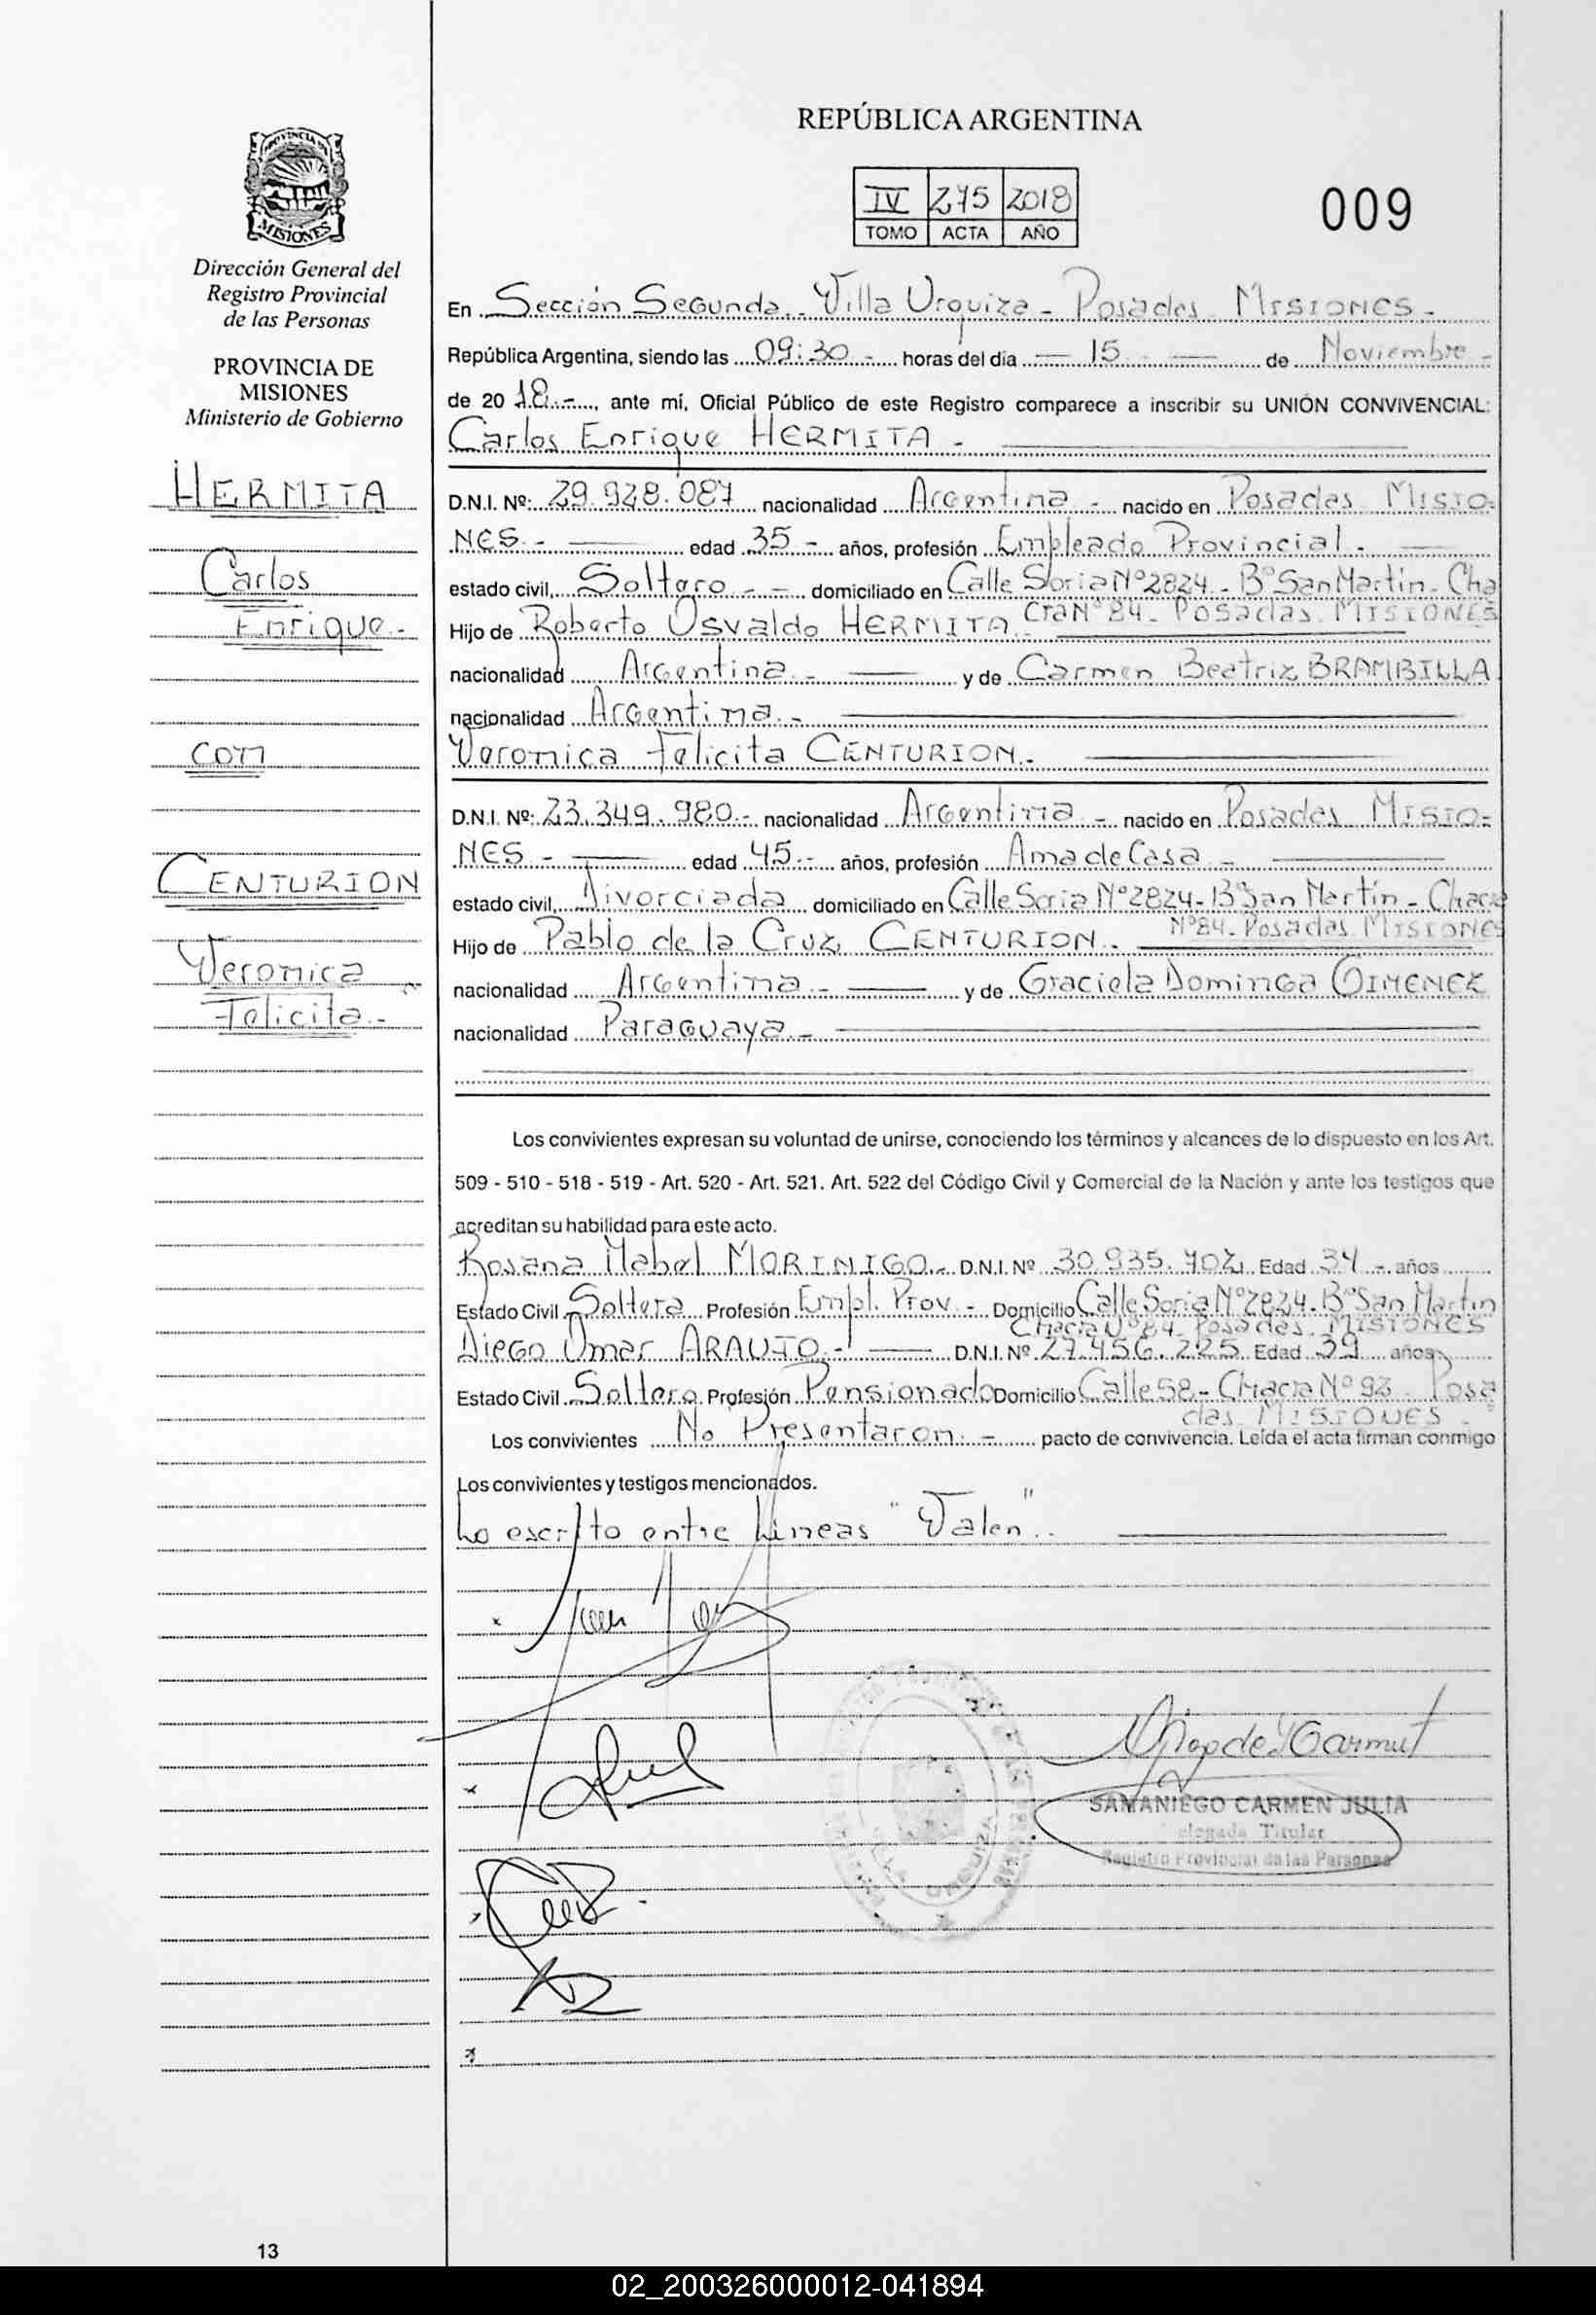 REPÚBLICA ARGENTINA
IV 275 2018
TOMO ACTA AÑO
009
PROVINCIA DE
MISIONES
Dirección General del
Registro Provincial
de las Personas
PROVINCIA DE
MISIONES
Ministerio de Gobierno
HERMITA
Carlos
Enrique.-
con
CENTURION
Veronica
Felicita.-
En Sección Segunda. Villa Urquiza - Posadas MISIONES -
República Argentina, siendo las 09:30 - horas del día — 15 — de Noviembre -
de 2018.-, ante mí, Oficial Público de este Registro comparece a inscribir su UNIÓN CONVIVENCIAL:
Carlos Enrique HERMITA -
D.N.I. Nº: 29.928.087 nacionalidad Argentina - nacido en Posadas MISIO-
NES - edad 35 - años, profesión Empleado Provincial -
estado civil, Soltero - domiciliado en Calle Soria Nº 2824 - Bº San Martin - Cha
cra Nº 84 - Posadas MISIONES
Hijo de Roberto Osvaldo HERMITA -
nacionalidad Argentina - y de Carmen Beatriz BRAMBILLA
nacionalidad Argentina -
Veronica Felicita CENTURION.-
D.N.I. Nº: 23.349.980.- nacionalidad Argentina - nacido en Posadas MISIO-
NES - edad 45.- años, profesión Ama de Casa -
estado civil, Divorciada domiciliado en Calle Soria Nº 2824 - Bº San Martin - Chacra
Nº 84 - Posadas MISIONES
Hijo de Pablo de la Cruz CENTURION.-
nacionalidad Argentina - y de Graciela Dominga GIMENEZ
nacionalidad Paraguaya -
Los convivientes expresan su voluntad de unirse, conociendo los términos y alcances de lo dispuesto en los Art.
509 - 510 - 518 - 519 - Art. 520 - Art. 521. Art. 522 del Código Civil y Comercial de la Nación y ante los testigos que
acreditan su habilidad para este acto.
Rosana Mabel MORINIGO.- D.N.I. Nº 30.935.702 Edad 34 - años
Estado Civil Soltera Profesión Empl. Prov. - Domicilio Calle Soria Nº 2824 - Bº San Martin
Chacra Nº 84 - Posadas MISIONES
Diego Omar ARAUJO.- D.N.I. Nº 27.456.225 Edad 39 años
Estado Civil Soltero Profesión Pensionado Domicilio Calle 58 - Chacra Nº 93 Posa
das MISIONES -
Los convivientes No Presentaron.- pacto de convivencia. Leída el acta firman conmigo
Los convivientes y testigos mencionados.
Lo escrito entre líneas "Valen".
SAMANIEGO CARMEN JULIA
Titular
Registro Provincial de las Personas
13
02_200326000012-041894